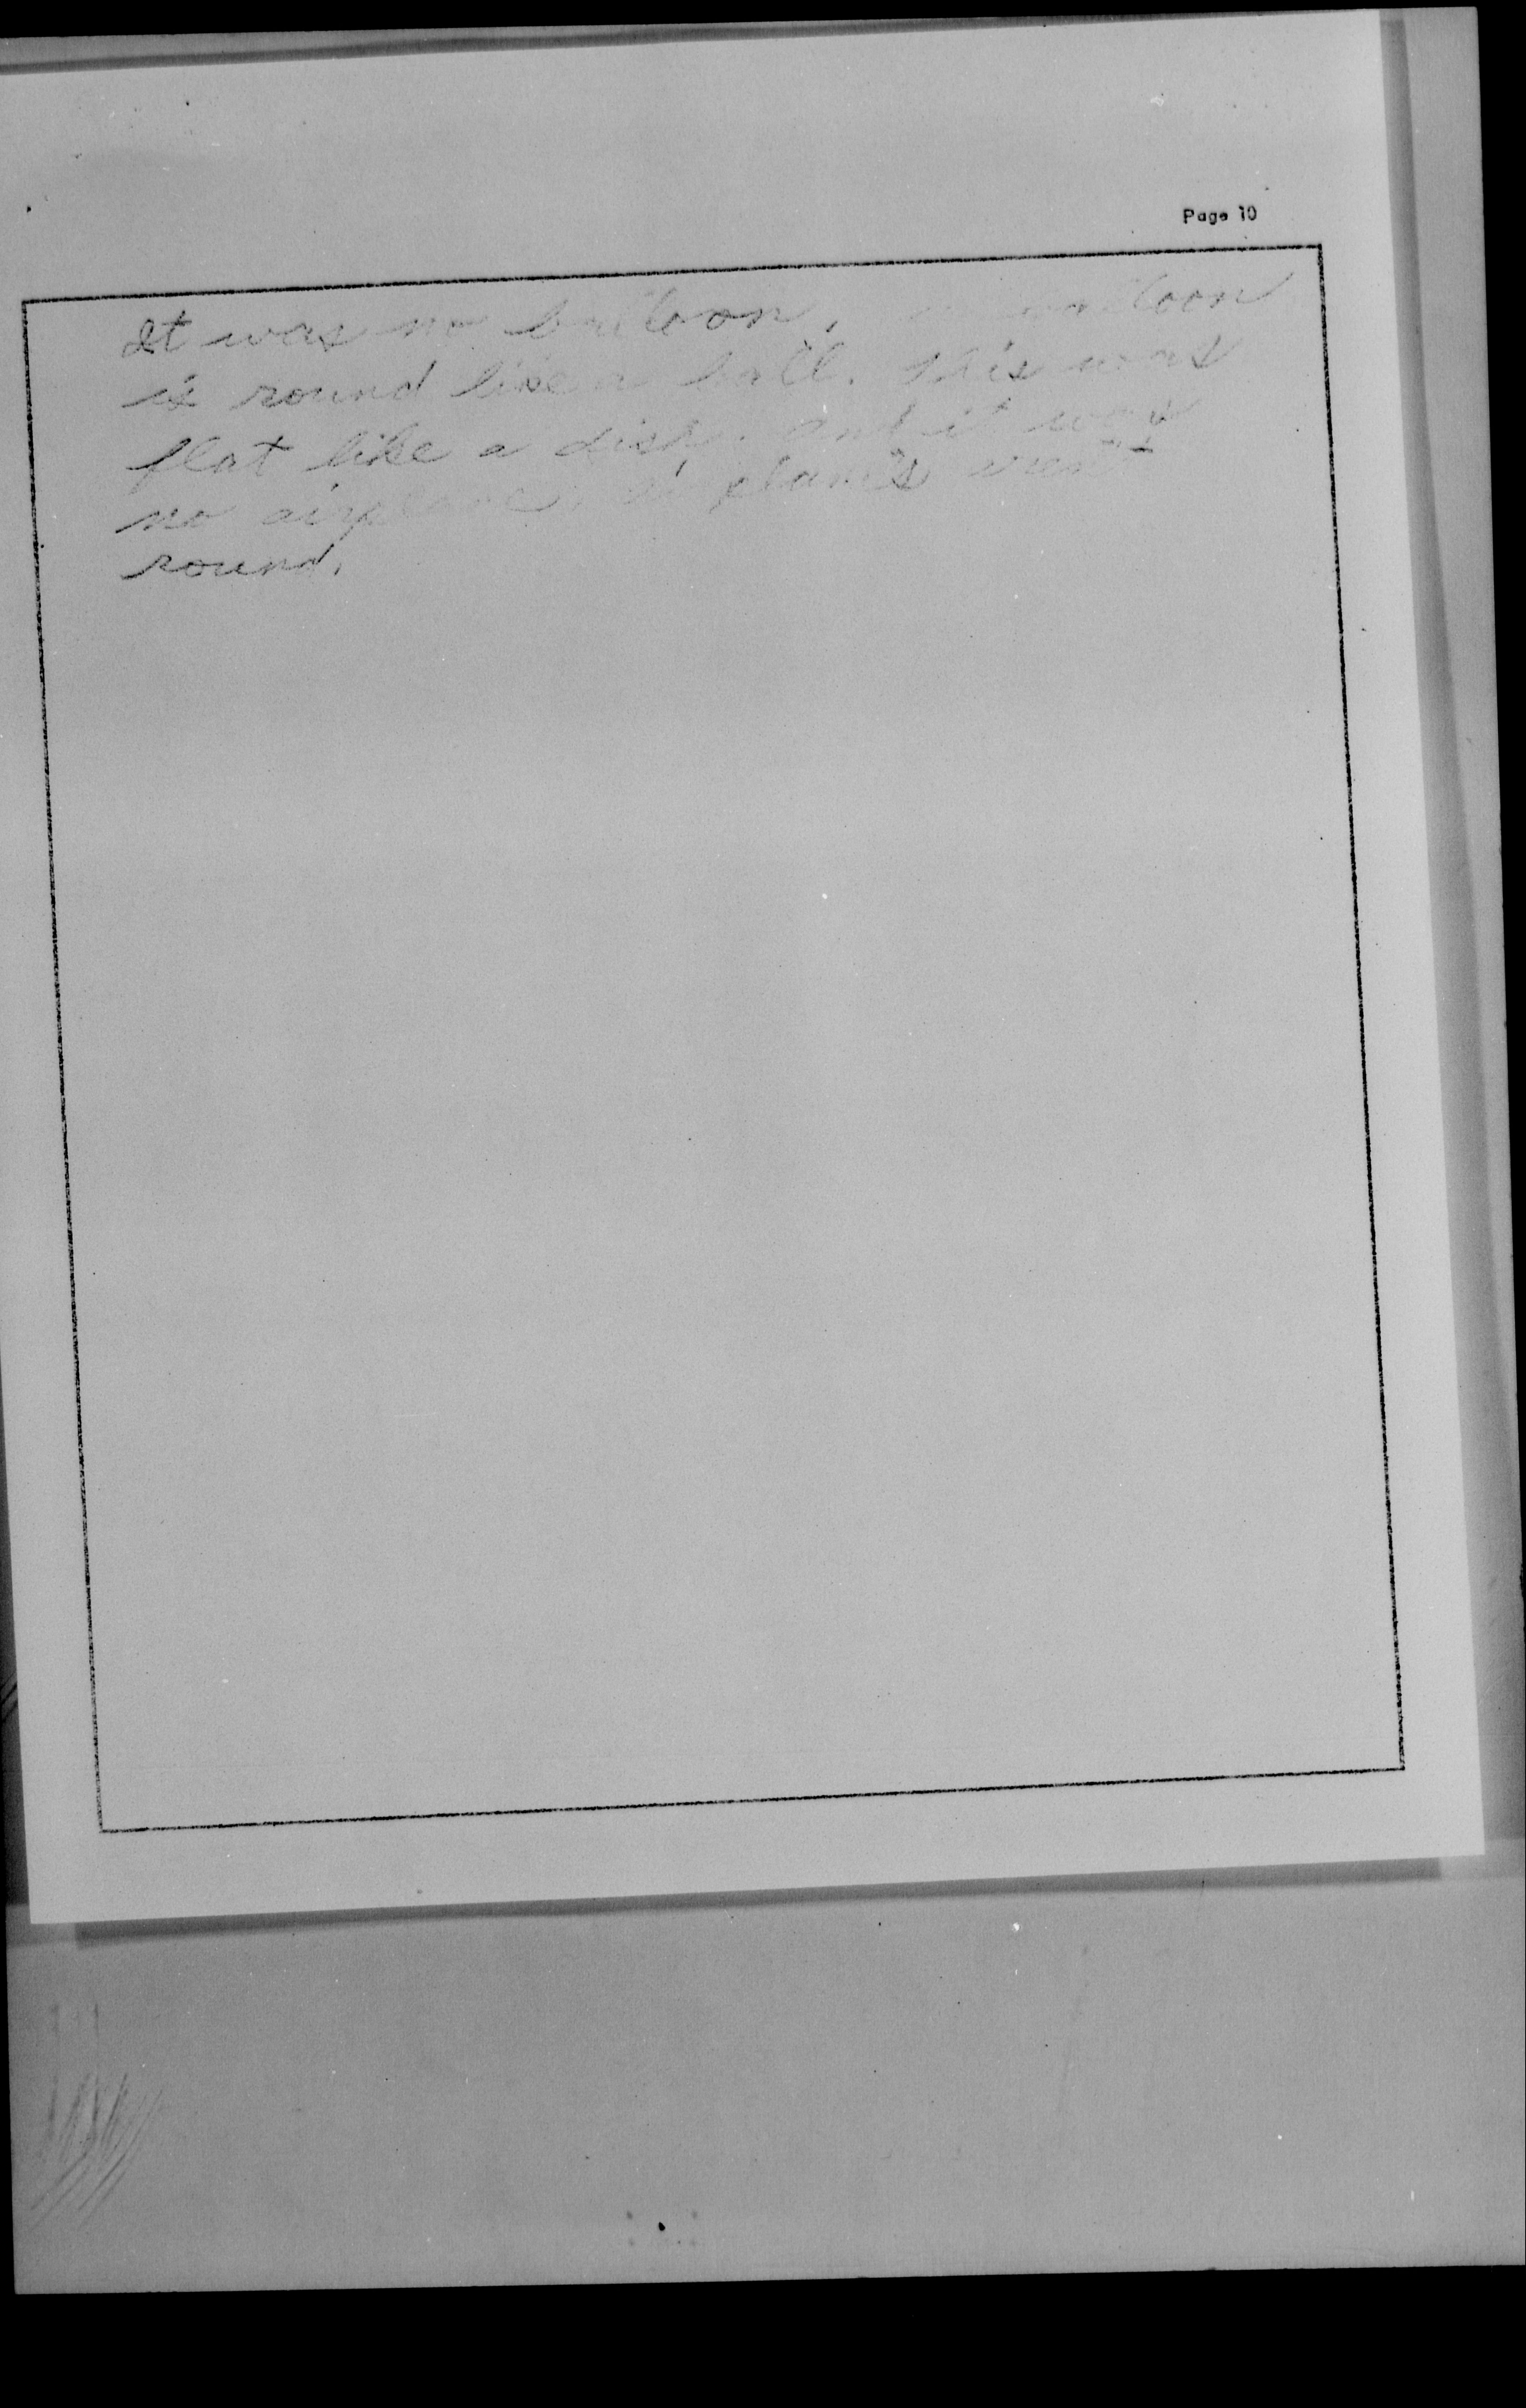 Page 10
It was no balloon. a balloon
is round like a ball. This was
flat like a dish. and it was
no airplane. airplanes
round.